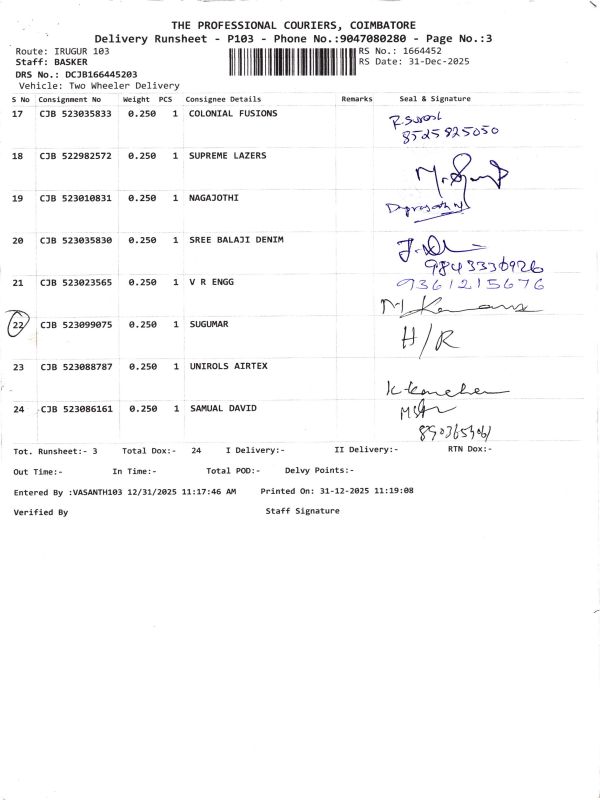 THE PROFESSIONAL COURIERS, COIMBATORE
Delivery Runsheet - P103 - Phone No.:9047080280 - Page No.:3
Route: IRUGUR 103 RS No.: 1664452
Staff: BASKER RS Date: 31-Dec-2025
DRS No.: DCJB166445203
Vehicle: Two Wheeler Delivery
S No Consignment No Weight PCS Consignee Details Remarks Seal & Signature
17 CJB 523035833 0.250 1 COLONIAL FUSIONS R.Suresh
8525825050
18 CJB 522982572 0.250 1 SUPREME LAZERS
19 CJB 523010831 0.250 1 NAGAJOTHI
20 CJB 523035830 0.250 1 SREE BALAJI DENIM
9843330926
21 CJB 523023565 0.250 1 V R ENGG 9361215676
22 CJB 523099075 0.250 1 SUGUMAR H/R
23 CJB 523088787 0.250 1 UNIROLS AIRTEX
24 CJB 523086161 0.250 1 SAMUAL DAVID
Tot. Runsheet:- 3 Total Dox:- 24 I Delivery:- II Delivery:- RTN Dox:-
Out Time:- In Time:- Total POD:- Delvy Points:-
Entered By :VASANTH103 12/31/2025 11:17:46 AM Printed On: 31-12-2025 11:19:08
Verified By Staff Signature